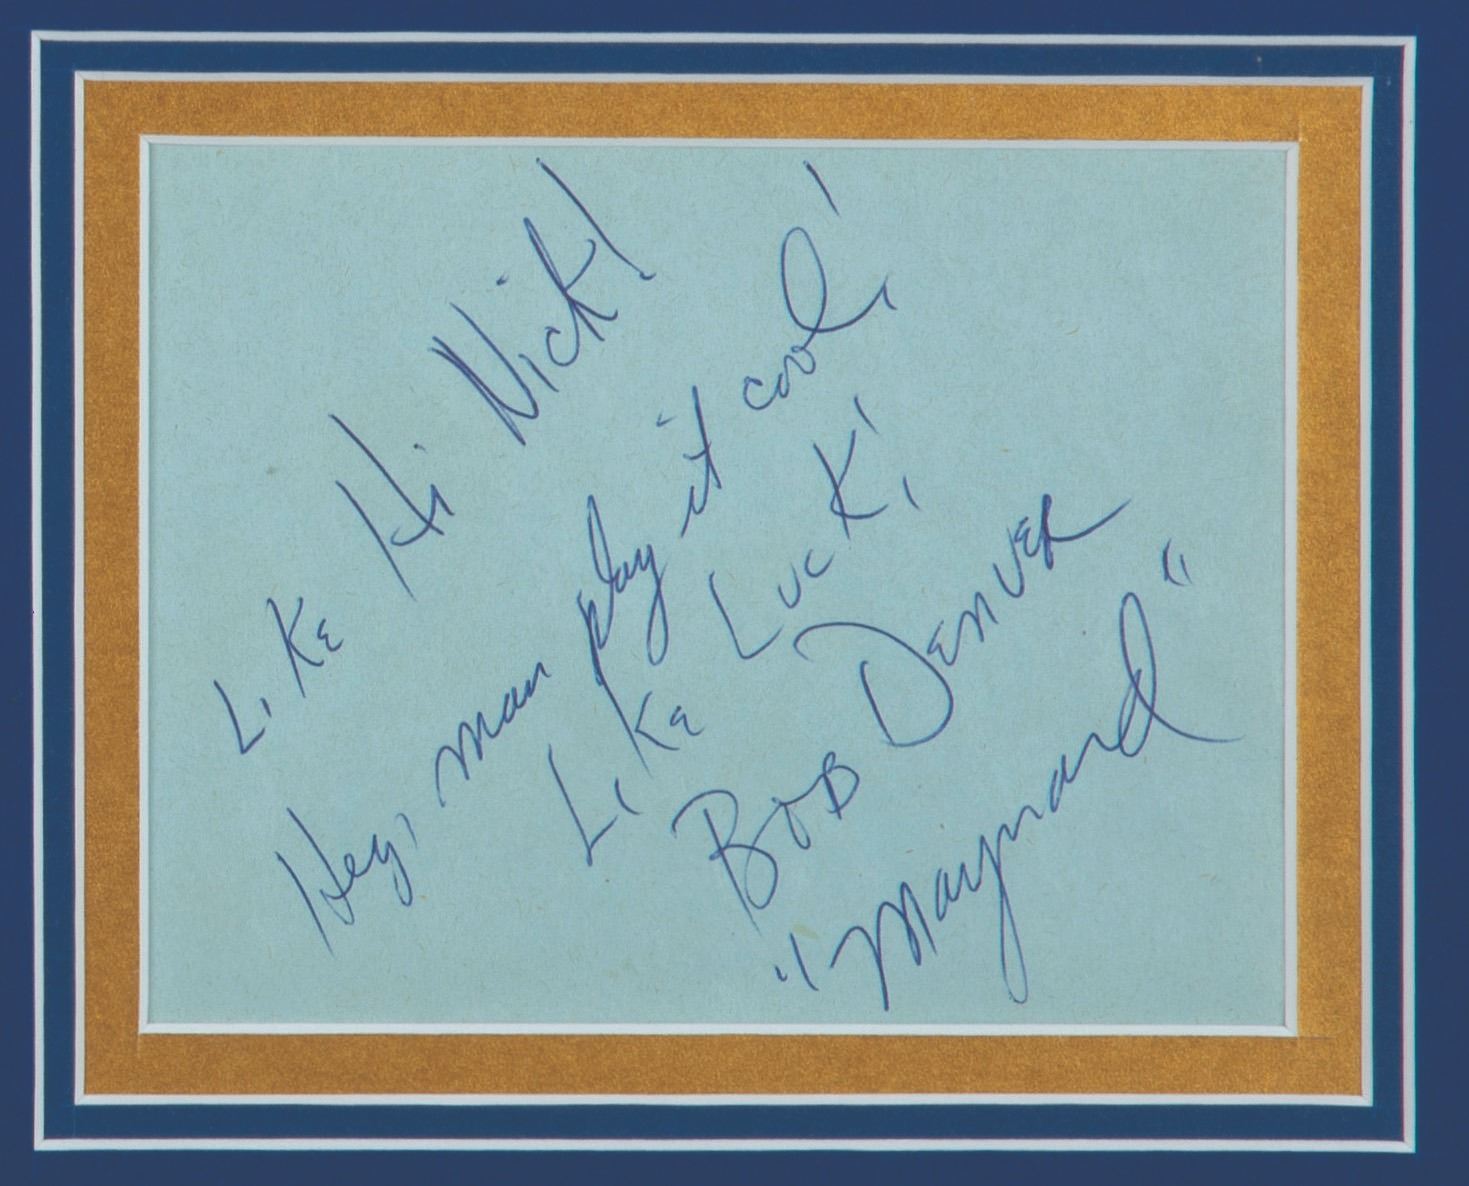 Like Hi Nick!
Hey, man play it cool,
Like Luck!
Bob Denver
"Maynard"